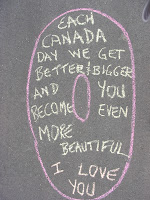 EACH
CANADA
DAY WE GET
BETTER & BIGGER
AND YOU
BECOME EVEN
MORE
BEAUTIFUL
I LOVE
YOU